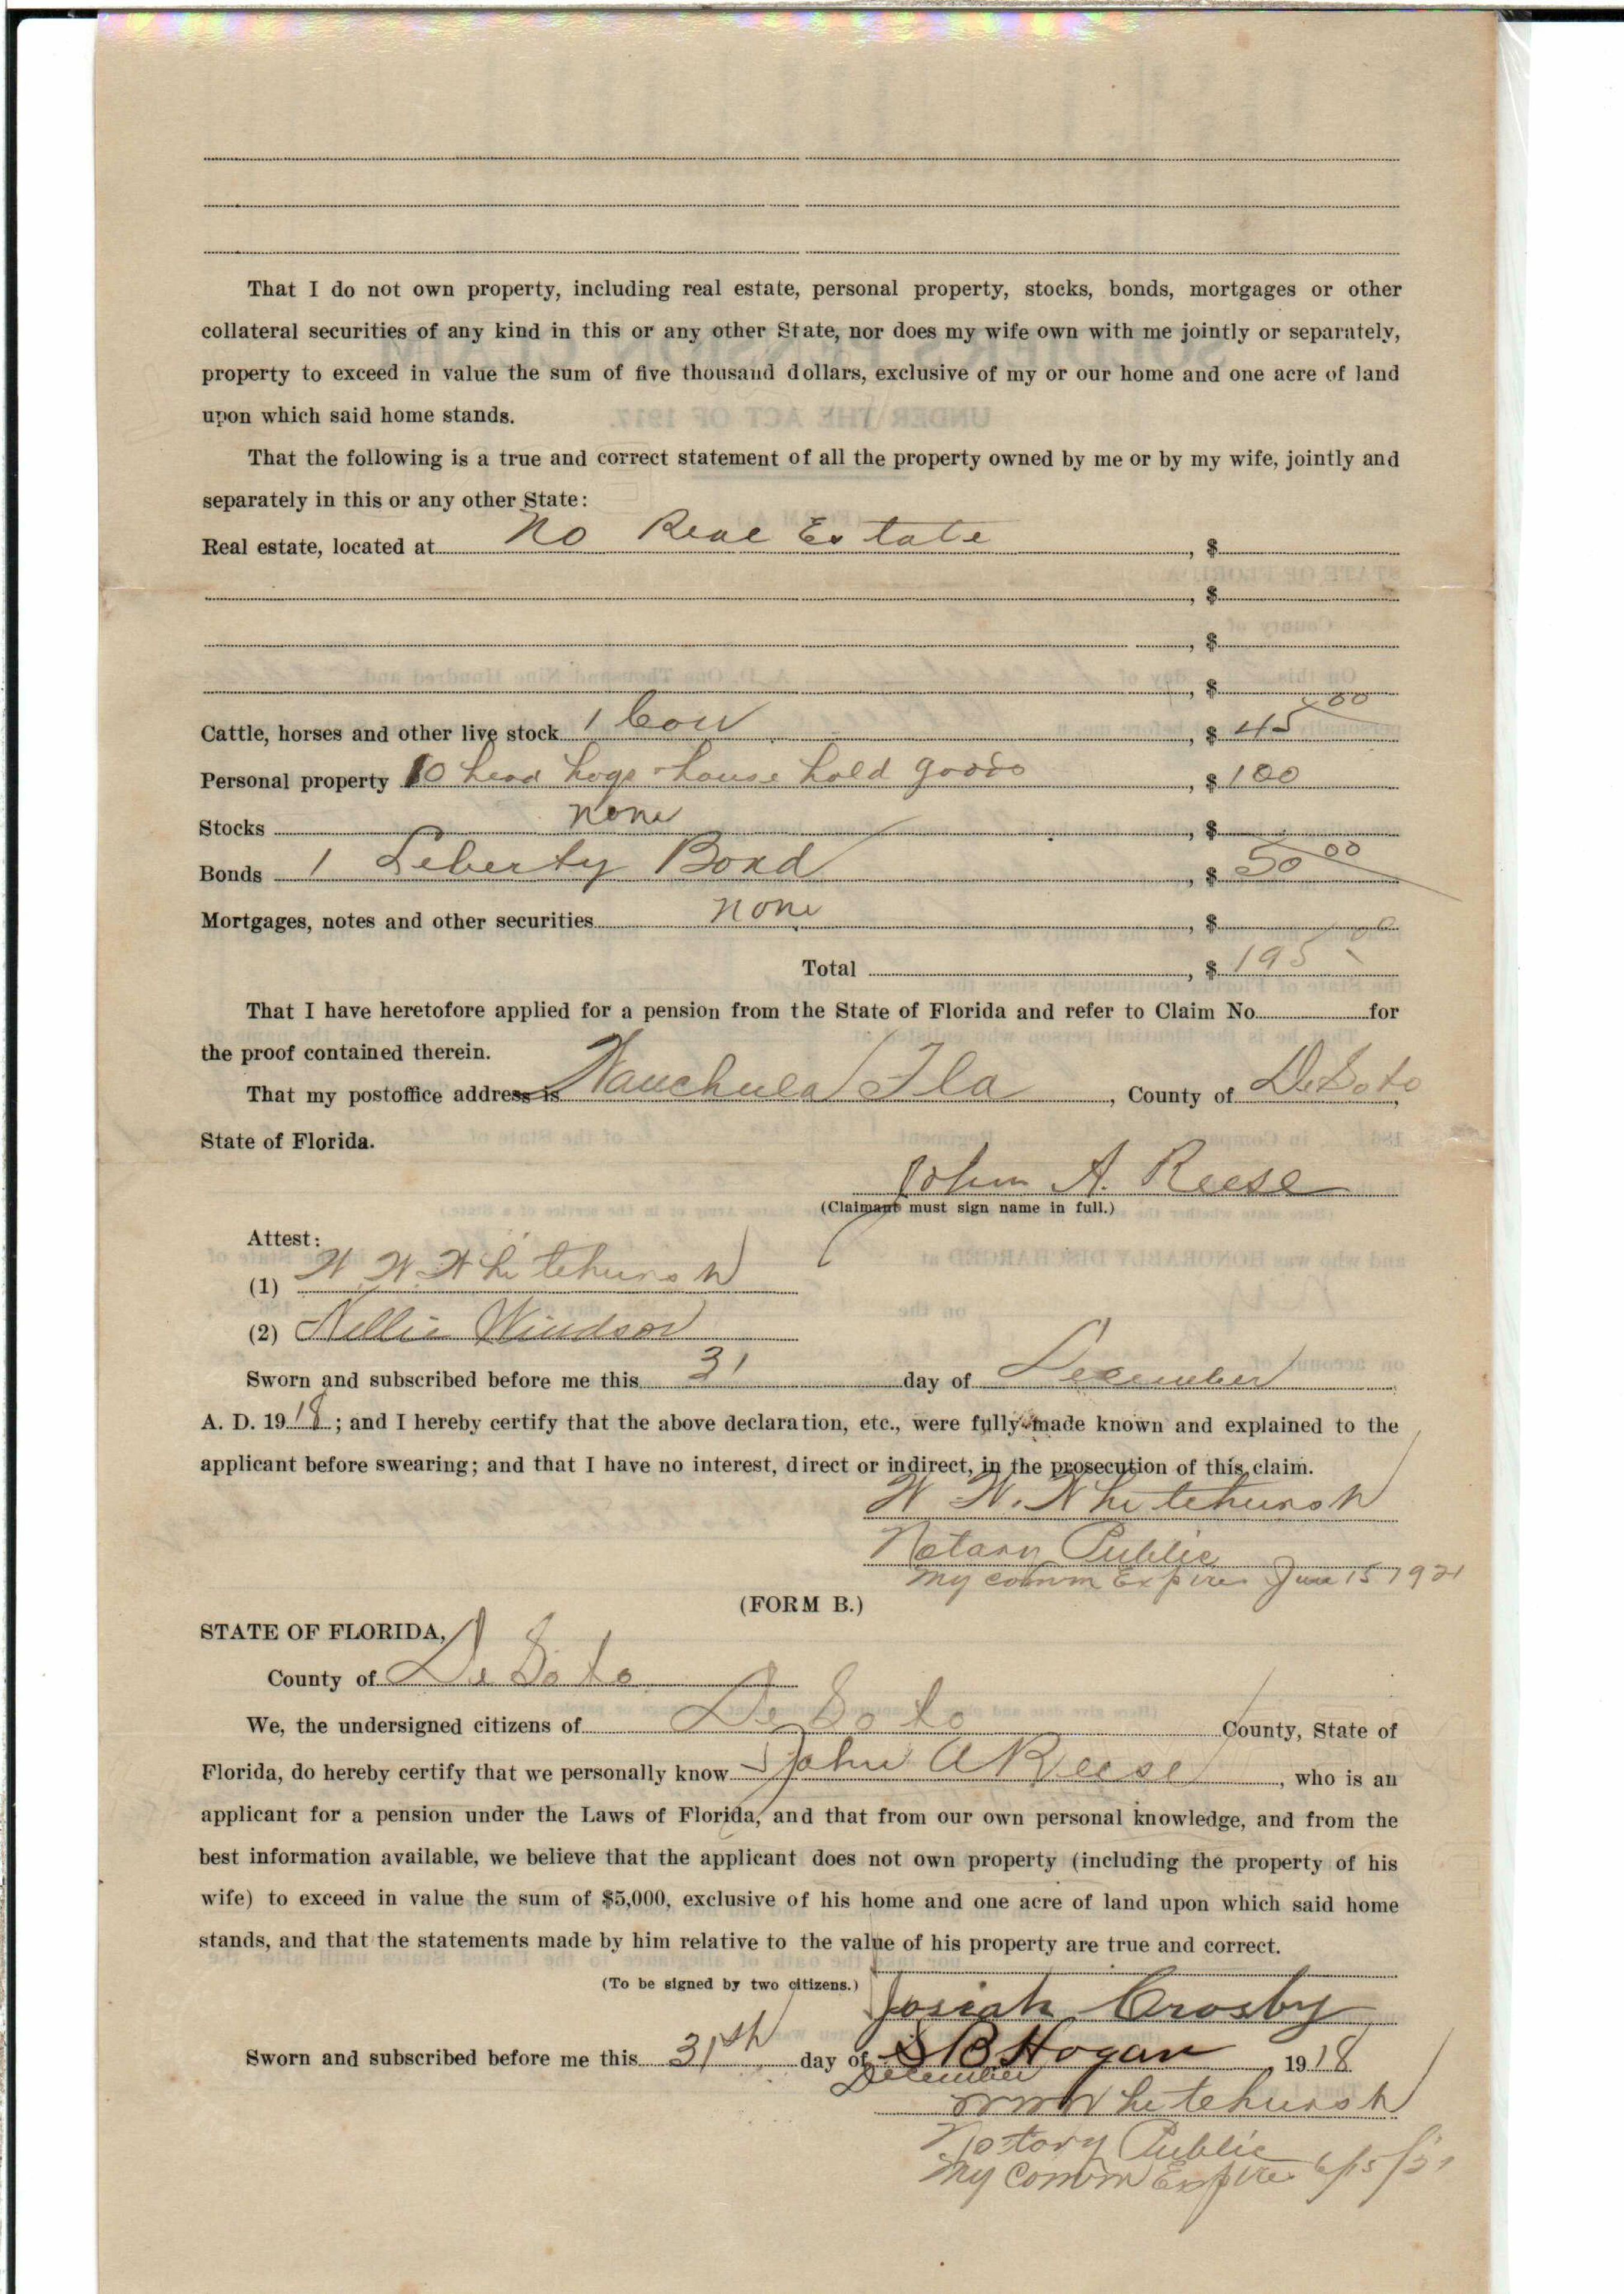 That I do not own property, including real estate, personal property, stocks, bonds, mortgages or other
collateral securities of any kind in this or any other State, nor does my wife own with me jointly or separately,
property to exceed in value the sum of five thousand dollars, exclusive of my or our home and one acre of land
upon which said home stands.
That the following is a true and correct statement of all the property owned by me or by my wife, jointly and
separately in this or any other State:
Real estate, located at No Real Estate, $
, $
, $
, $
Cattle, horses and other live stock 1 Cow, $ 45 00
Personal property 10 head hogs house hold goods, $ 100
Stocks none, $
Bonds 1 Liberty Bond, $ 50 00
Mortgages, notes and other securities none, $
Total, $ 195 00
That I have heretofore applied for a pension from the State of Florida and refer to Claim No. for
the proof contained therein.
That my postoffice address is Wauchula Fla, County of DeSoto,
State of Florida.
John A. Reese
(Claimant must sign name in full.)
Attest:
(1) W W Whitehurst
(2) Nellie Windsor
Sworn and subscribed before me this 31 day of December
A. D. 1918; and I hereby certify that the above declaration, etc., were fully made known and explained to the
applicant before swearing; and that I have no interest, direct or indirect, in the prosecution of this claim.
W W. Whitehurst
Notary Public
My comm Expires June 15 1921
(FORM B.)
STATE OF FLORIDA,
County of De Soto
We, the undersigned citizens of De Soto County, State of
Florida, do hereby certify that we personally know John A Reese, who is an
applicant for a pension under the Laws of Florida, and that from our own personal knowledge, and from the
best information available, we believe that the applicant does not own property (including the property of his
wife) to exceed in value the sum of $5,000, exclusive of his home and one acre of land upon which said home
stands, and that the statements made by him relative to the value of his property are true and correct.
(To be signed by two citizens.)
Josiah Crosby
S B Hogan
Sworn and subscribed before me this 31th day of December, 1918
W W Whitehurst
Notary Public
My Comm Expires 6/15/21